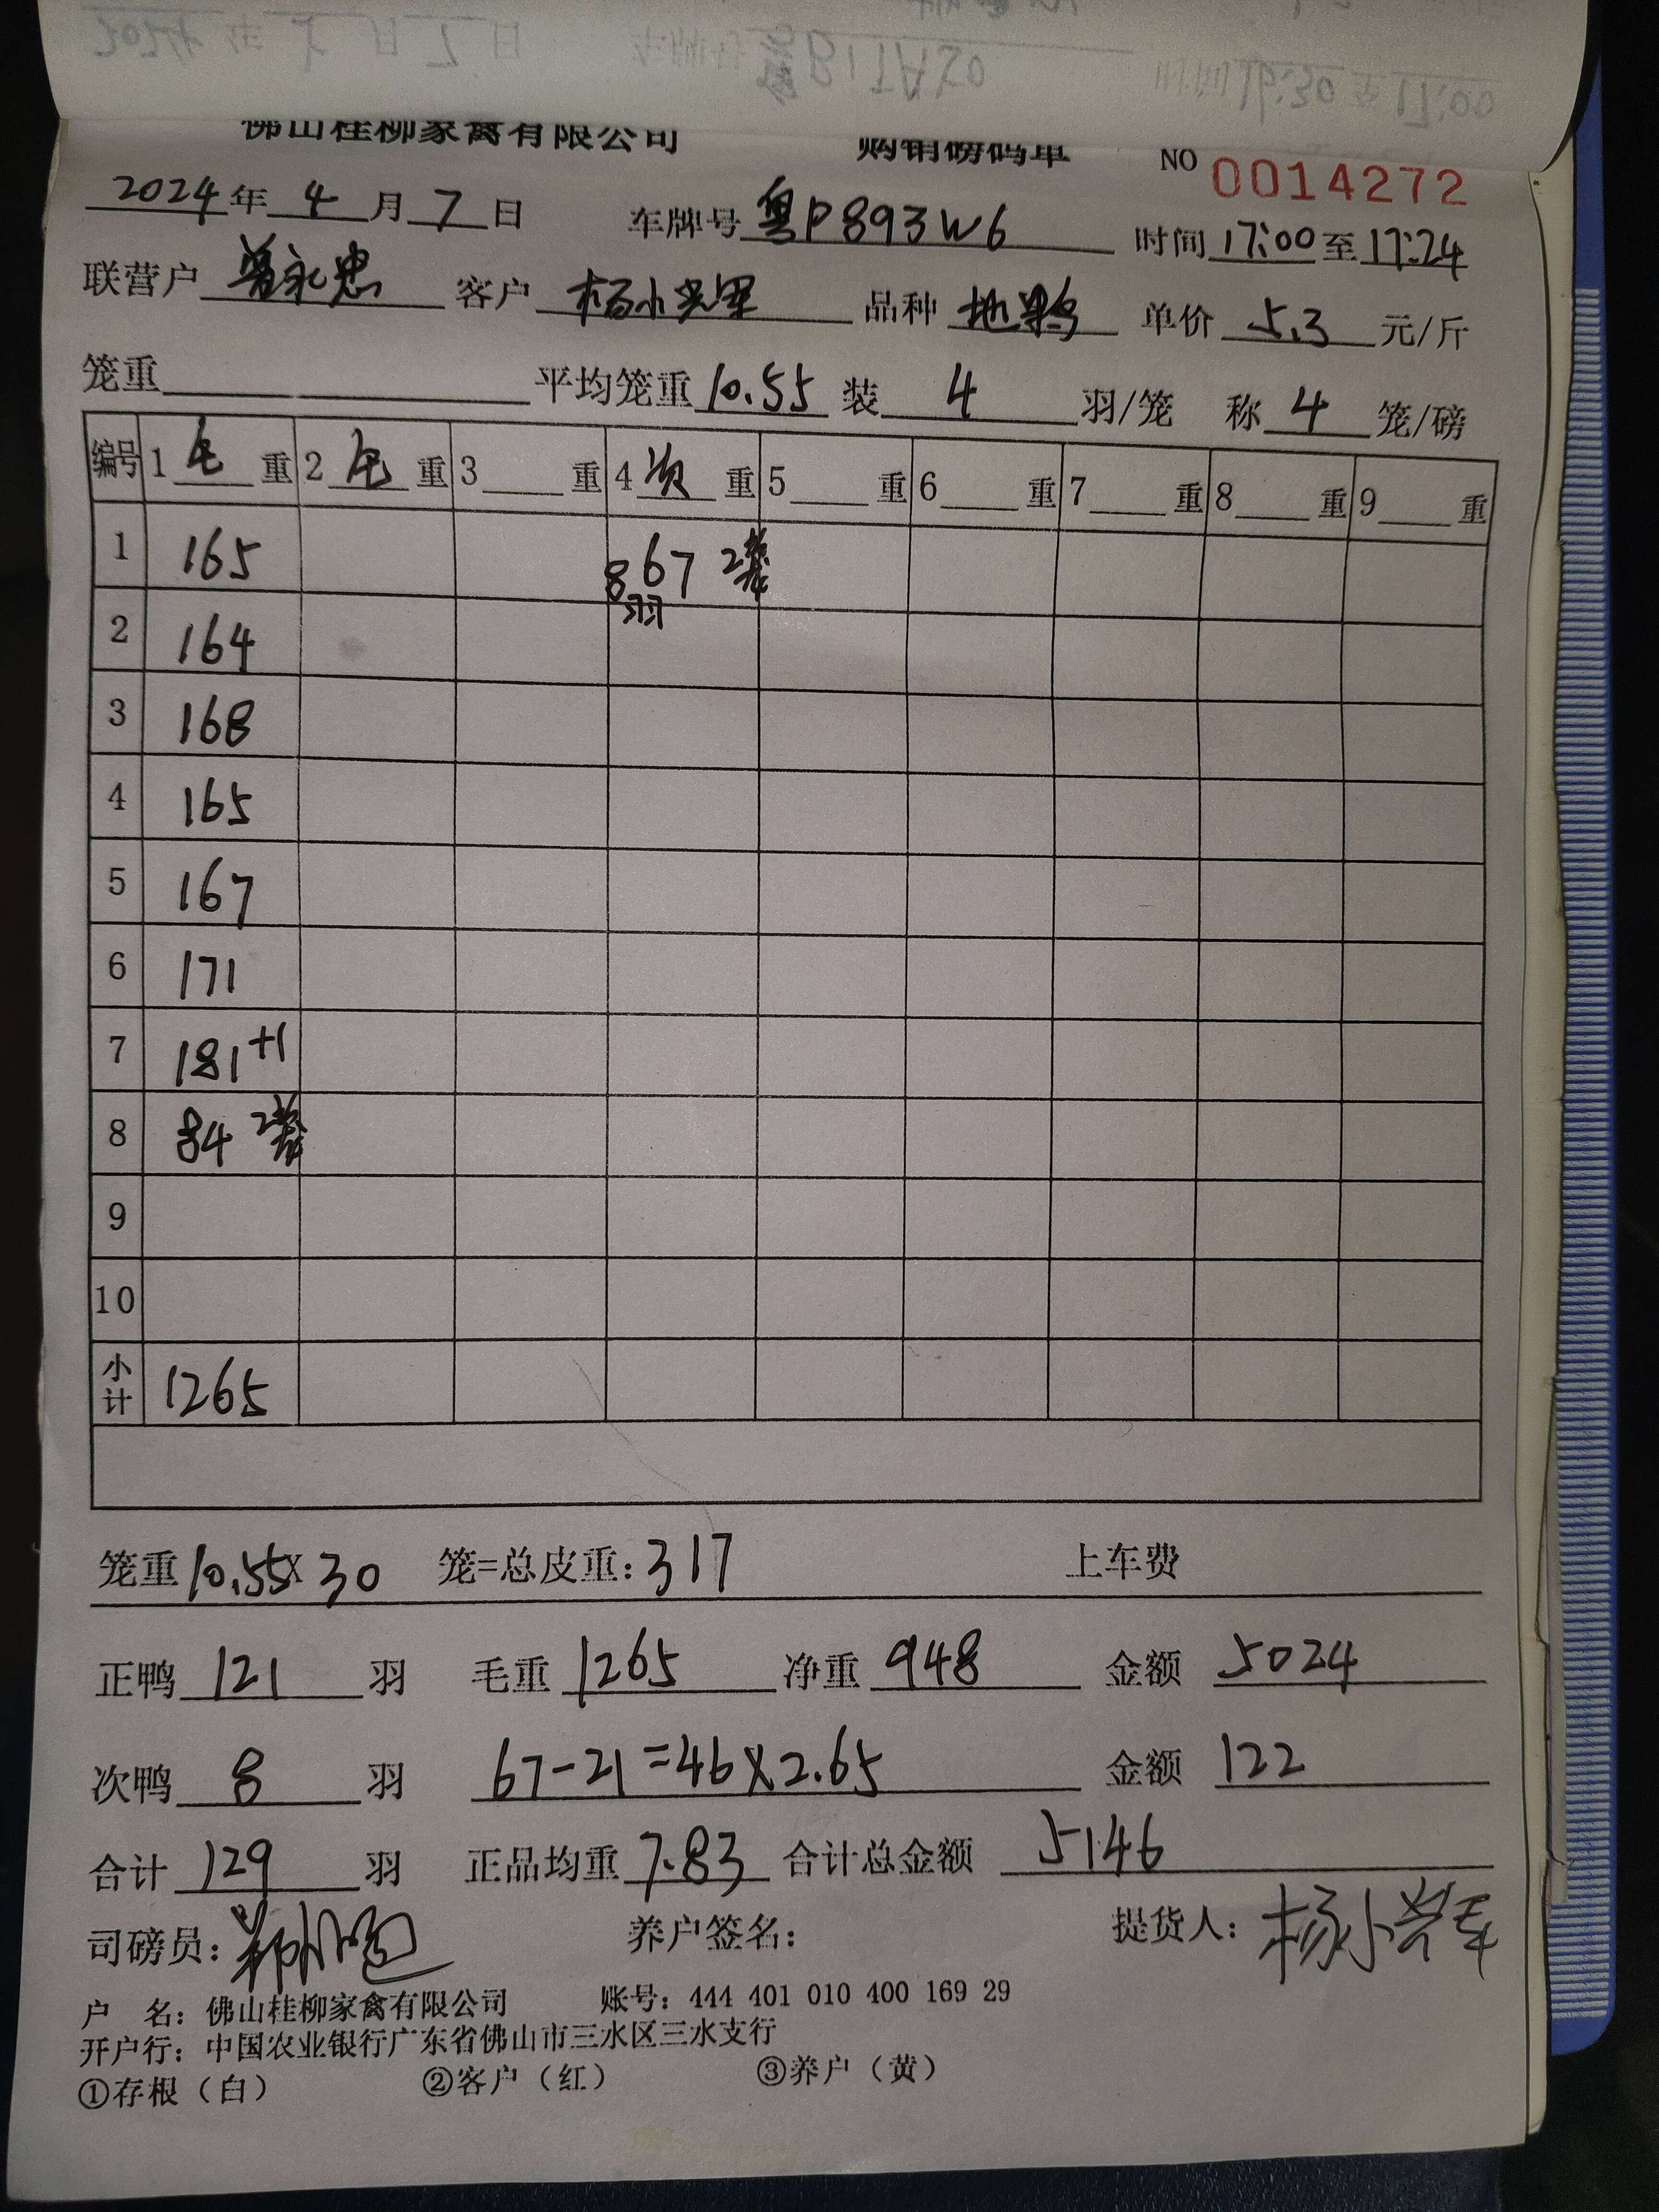 佛山桂柳家禽有限公司 购销磅码单 NO 0014272
2024年4月7日 车牌号 粤P893W6 时间 17:00至17:24
联营户 曾永忠 客户 杨小 品种 单价 5.3 元/斤
笼重 平均笼重 10.55 装 4 羽/笼 称 4 笼/磅
编号 1 毛 重 2 毛 重 3 重 4 次 重 5 重 6 重 7 重 8 重 9 重
1 165 8羽 67 2笼
2 164
3 168
4 165
5 167
6 171
7 181+1
8 84 2笼
9
10
小计 1265
笼重 10.55X30 笼=总皮重:317 上车费
正鸭 121 羽 毛重 1265 净重 948 金额 5024
次鸭 8 羽 67-21=46X2.65 金额 122
合计 129 羽 正品均重 7.83 合计总金额 5146
司磅员: 养户签名: 提货人: 杨小
户 名: 佛山桂柳家禽有限公司 账号: 444 401 010 400 169 29
开户行: 中国农业银行广东省佛山市三水区三水支行
①存根（白） ②客户（红） ③养户（黄）